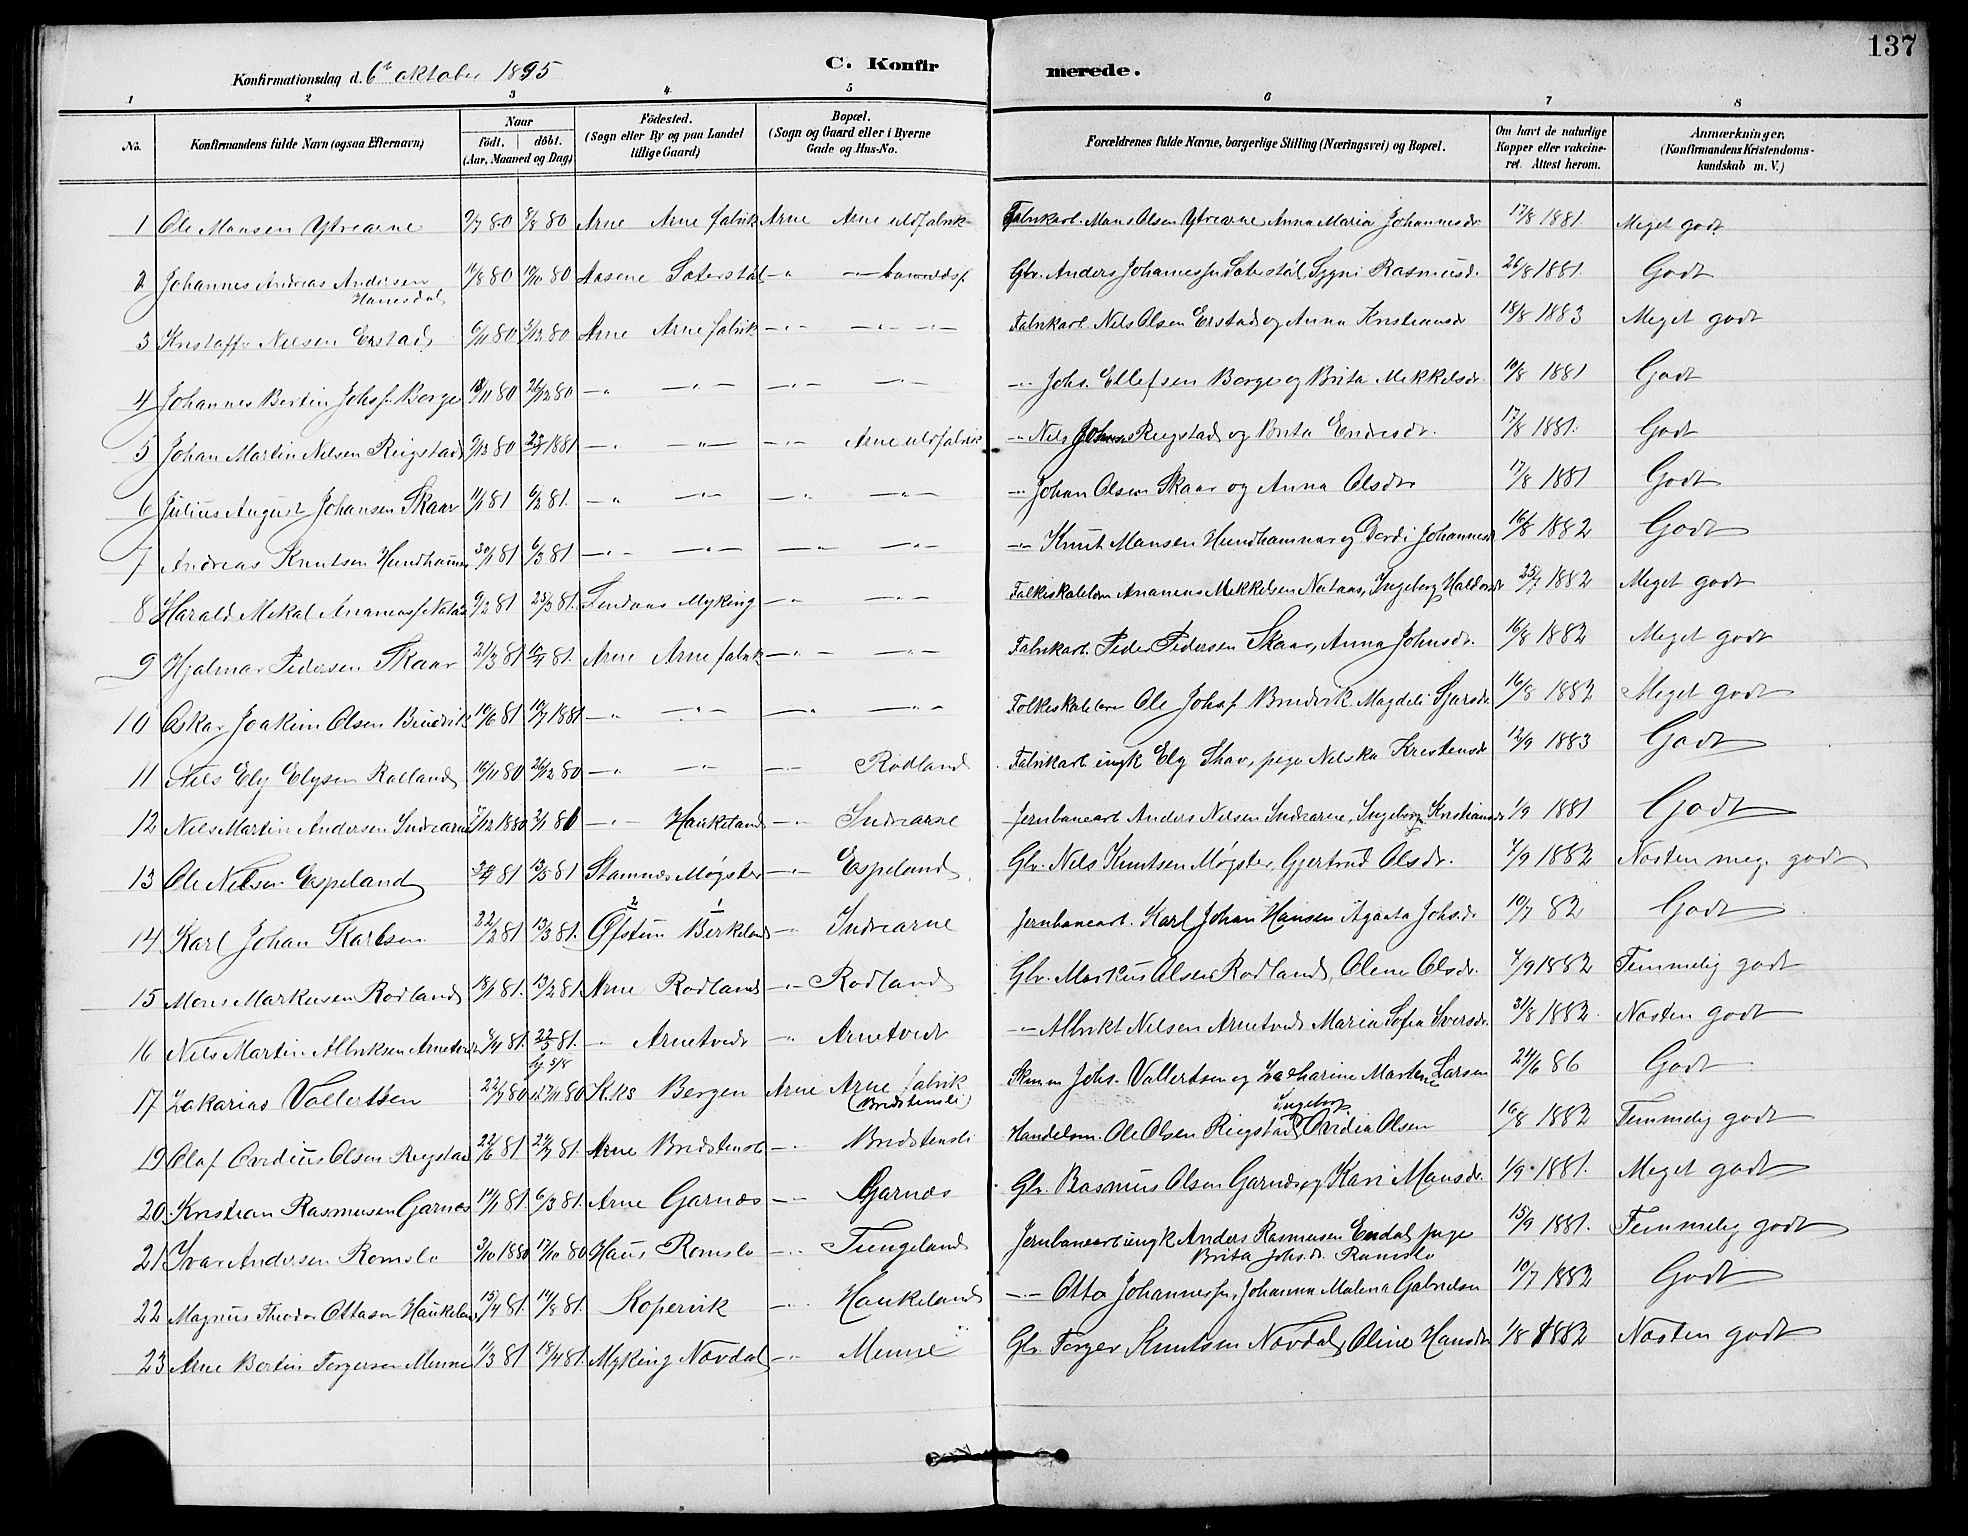 137
Konfirmationsdag d. 6te oktober 1895 C. Konfirmerede.
1 2 3 4 5 6 7 8
No. Konfirmandens fulde Navn (ogsaa Efternavn) Naar födt. döbt. (Aar, Maaned og Dag) Födested. (Sogn eller By og paa Landet tillige Gaard) Bopæl. (Sogn og Gaard eller i Byerne Gade og Hus-No. Forældrenes fulde Navne, borgerlige Stilling (Næringsvei) og Bopæl. Om havt de naturlige Kopper eller vakcineret. Attest herom. Anmærkninger, (Konfirmandens Kristendomskundskab m. V.)
1 Ole Monsen Ytrearne 9/7 80 8/8 80 Arne Arne fabrik Arne Arne uldfabrik Fabrikarb. Mons Olsen Ytrearne Anna Maria Johannesdr. 17/8 1881 Meget godt
2 Johannes Andreas Andersen 11/8 80 10/10 80 Aasene Säterstöl -"- -"- Glr. Anders Johannessen Säterstöl, Sygni Rasmusdr. 26/8 1881. Godt
3 Kristoffer Nilsen Erstad 6/11 80 5/12 80 Arne Arne fabrik -"- -"- -"- Fabrikarb. Nils Olsen Erstad og Anna Kristiansdr 18/8 1883 Meget godt
4 Johannes Bertin Johsf. Borge 18/11 80 26/12 80 -"- -"- -"- -"- -"- Johs. Ellefsen Borge og Brita Mikkelsdr. 10/8 1881 Godt
5 Johan Martin Nilsen Reigstad 9/12 80 23/1 1881 -"- -"- -"- Arne uldfabrik -"- Nils Johans Reigstad og Brita Endresdr. 17/8 1881. Godt
6 Julius August Johansen Skaar 11/1 81 6/2 81. -"- -"- -"- -"- -"- Johan Olsen Skaar og Anna Olsdr 17/8 1881 Godt
7 Andreas Knutsen Hundhamar 30/1 81 6/3 81 -"- -"- -"- -"- -"- Knut Monsen Hundhammar og Dordi Johannesdr 16/8 1882 Godt
8 Harald Mikal Ananiasf. Nataas 9/2 81 25/3 81. Lindaas Myking -"- -"- Folkeskolelærer Ananias Mikkelsen Nataas, Ingeborg Haldorsdr 25/7 1882 Meget godt
9 Hjalmar Pedersen Skaar 21/3 81 10/4 81. Arne Arne fabrik -"- -"- Fabrikarb. Peder Pedersen Skaar, Anna Johnsdr. 16/8 1882 Meget godt
10 Oskar Joakim Olsen Bruvik 10/6 81 10/7 1881 -"- -"- -"- -"- Folkeskolelærer Ole Johsf. Bruvik Magdeli Sjursdr. 16/8 1882 Meget godt
11 Nils Ely Elysen Rødland 16/11 80 26/12 80 -"- -"- -"- Rødland Fabrikarb. ungk Ely Skav, pige Nilska Kristensdr 12/9 1883 Godt
12 Nils Martin Andersen Indrearne 7/12 1880 2/1 81 -"- Haukeland -"- Indrearne Jernbanearb Anders Nilsen Indrearne, Ingeborg Kristiansdr 1/9 1881 Godt
13 Ole Nilsen Espeland 81 13/3 81 Stamnes Møgster -"- Espeland Glr. Nils Knutsen Møgster, Gjertrud Olsdr. 7/9 1882 Næsten meg. godt
14 Karl Johan Karlsen 22/2 81 13/3 81. Østun Birkeland -"- Indrearne Jernbanearb. Karl Johan Hansen Agaata Johs.dr 10/7 82 Godt
15 Mons Markusen Rødland 18/1 81. 13/2 81 Arne Rødland -"- Rødland Glr. Markus Olsen Rødland, Oline Olsdr. 7/9 1882 Temmelig godt
16 Nils Martin Albriktsen Arnetvedt 8/4 81. 22/5 81. -"- Arnetvedt -"- Arnetvedt -"- Albrikt Nilsen Arnetvedt Maria Sofia Iversdr. 31/8 1882. Næsten godt
17 Zakarias Vollertsen 22/7 80 12/11 80 Bergen Arne Arne fabrik (Bredstensli) Johs. Vollertsen og Zacharine Martine Larsen 24/6 86 Godt
19 Olaf Ovidius Olsen Reigstad 22/6 81 24/7 81. Arne Bredstensli -"- Bredstensli Handelsm. Ole Olsen Reigstad, Ingeborg Ovidia Olsen 16/8 1882 Temmelig godt
20. Kristian Rasmusen Garnæs 14/1 81. 6/3 81. Arne Garnæs -"- Garnæs Glr. Rasmus Olsen Garnæs og Kari Monsdr. 1/9. 1881. Meget godt
21 Ivar Andersen Romslo 3/10 1880 17/10 80 Haus Romslo -"- Tungeland Jernbanearb ungk Anders Rasmusen Endal pige Brita Johs.dr. Romslo 15/9 1881. Temmelig godt
22 Magnus Theodor Ottosen Haukeland 15/4 81. 14/8 81. Kopervik -"- Haukeland -"- Otto Johannessen, Johanna Malena Gabrielsen 10/7 1882 Godt
23 Arne Bertin Torgersen Minne 11/3 81 18/4 81. Myking Nøvdal -"- Minne Glr. Torger Knutsen Nøvdal, Oline Hansdr 1/8 1882 Næsten godt